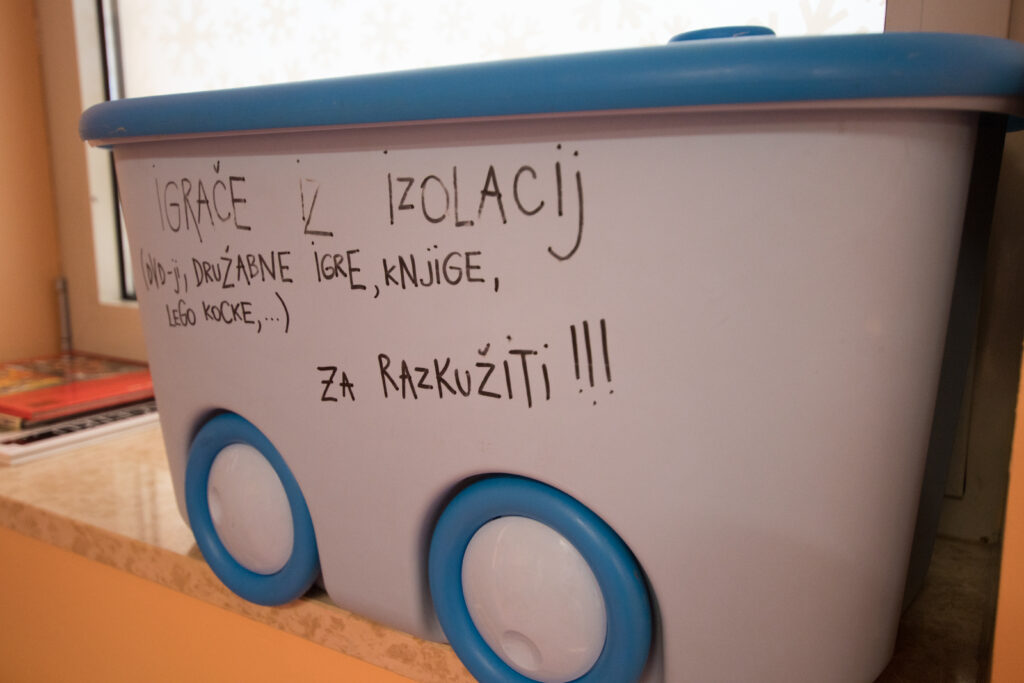 İGRAČE İZ İZOLACİj
(DVD-ji, DRUŽABNE İGRE, KNjiGE,
LEGO KOCKE,...)
ZA RAZKUŽİTİ !!!